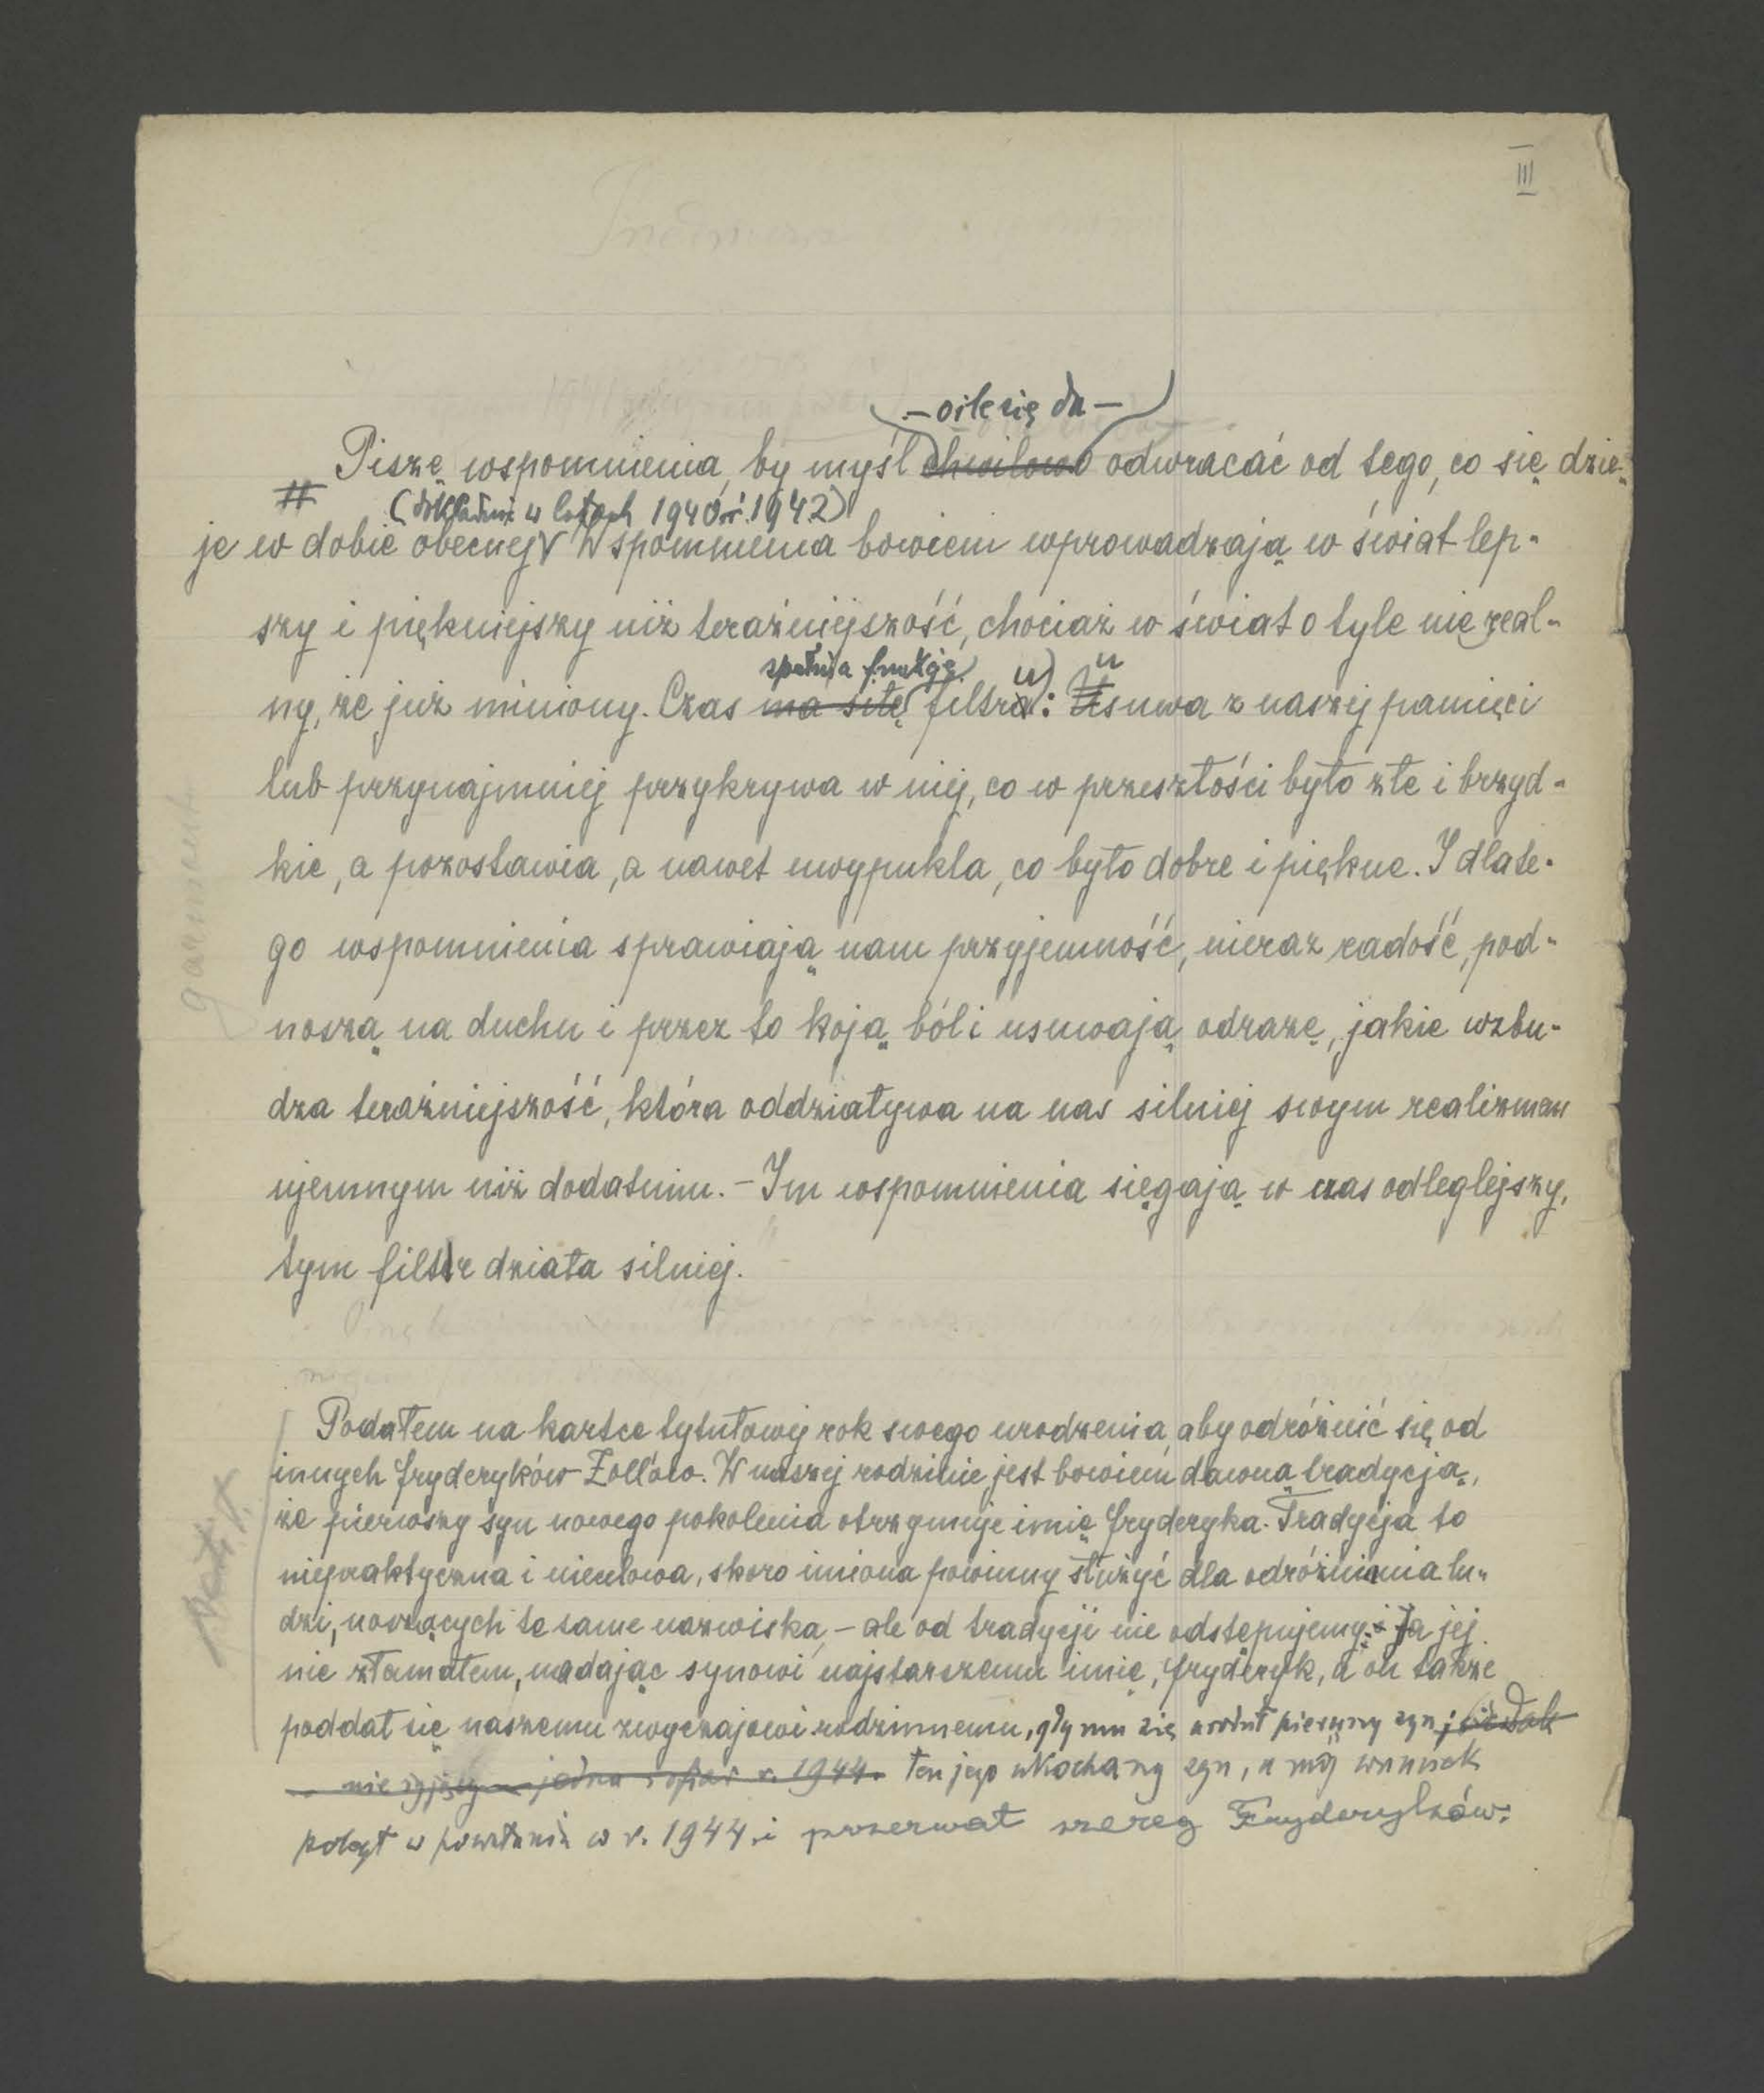 III
– o ile się da –
Piszę wspomnienia, by myśl chwilowo odwracać od tego, co się dzie-
# (dokładnie w latach 1940 i 1942)
je w dobie obecnej Wspomnienia bowiem wprowadzają w świat lep-
szy i piękniejszy niż teraźniejszość, chociaż w świat o tyle nie real-
spełnia funkcję u) u
ny, że już miniony. Czas ma siłę filtra: Usuwa z naszej pamięci
lub przynajmniej przykrywa w niej, co w przeszłości było złe i brzyd-
kie, a pozostawia, a nawet uwypukla, co było dobre i piękne. I dlate-
go wspomnienia sprawiają nam przyjemność, nieraz radość, pod-
noszą na duchu i przez to koją ból i usuwają odrazę, jakie wzbu-
dza teraźniejszość, która oddziaływa na nas silniej swym realizmem
ujemnym niż dodatnim. – Im wspomnienia sięgają w czas odleglejszy,
tym filtr działa silniej.
garmont
Podałem na kartce tytułowej rok swego urodzenia, aby odróżnić się od
innych Fryderyków Zollów. W naszej rodzinie jest bowiem dawną tradycją,
że pierwszy syn nowego pokolenia otrzymuje imię Fryderyka. Tradycja to
niepraktyczna i niecelowa, skoro imiona powinny służyć dla odróżnienia lu-
dzi, noszących te same nazwiska, – ale od tradycji nie odstępujemy. Ja jej
nie złamałem, nadając synowi najstarszemu imię, Fryderyk, a on także
poddał się naszemu zwyczajowi rodzinnemu, gdy mu się urodził pierwszy syn;
nie żyjący r. 1944. Ten jego ukochany syn, a mój wnuczek
poległ w powstaniu w r. 1944. i przerwał szereg Fryderyków.